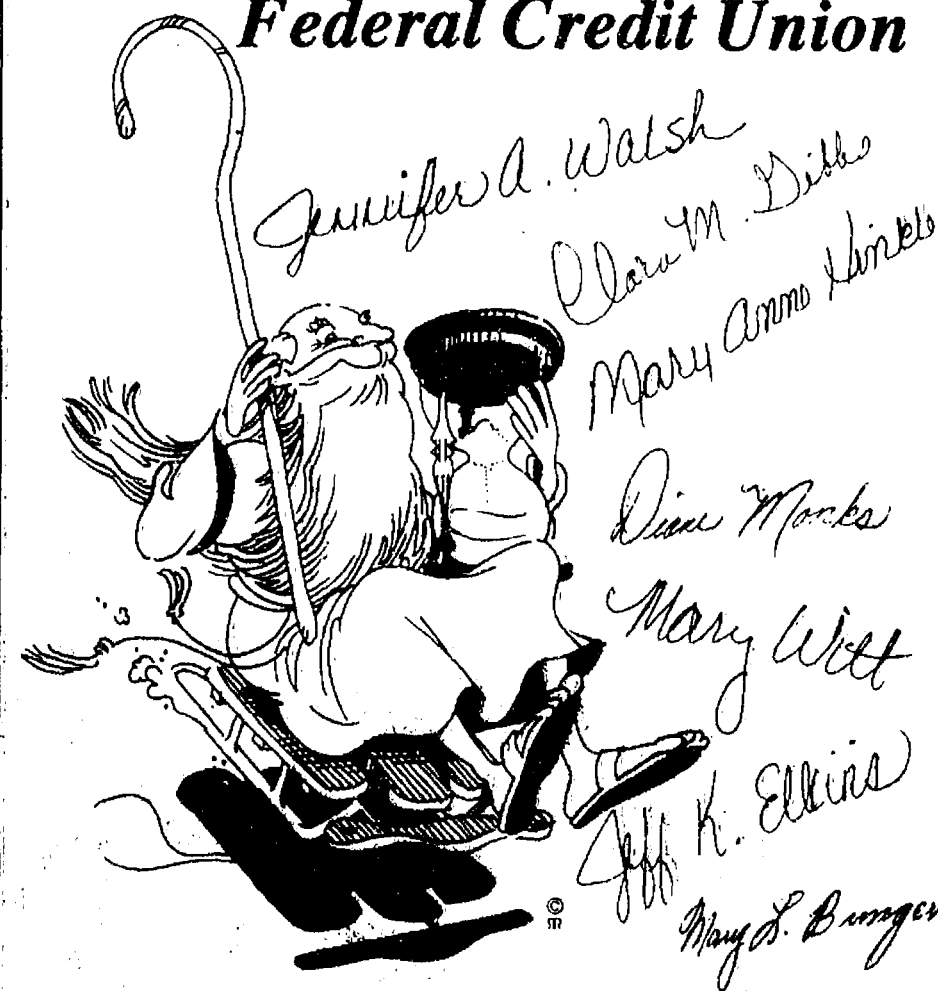 Federal Credit Union
Jennifer A. Walsh
Clara M. Gibbs
Mary Anne Hinkle
Diane Monks
Mary Witt
Jeff K. Elkins
Mary L. Bunger
©